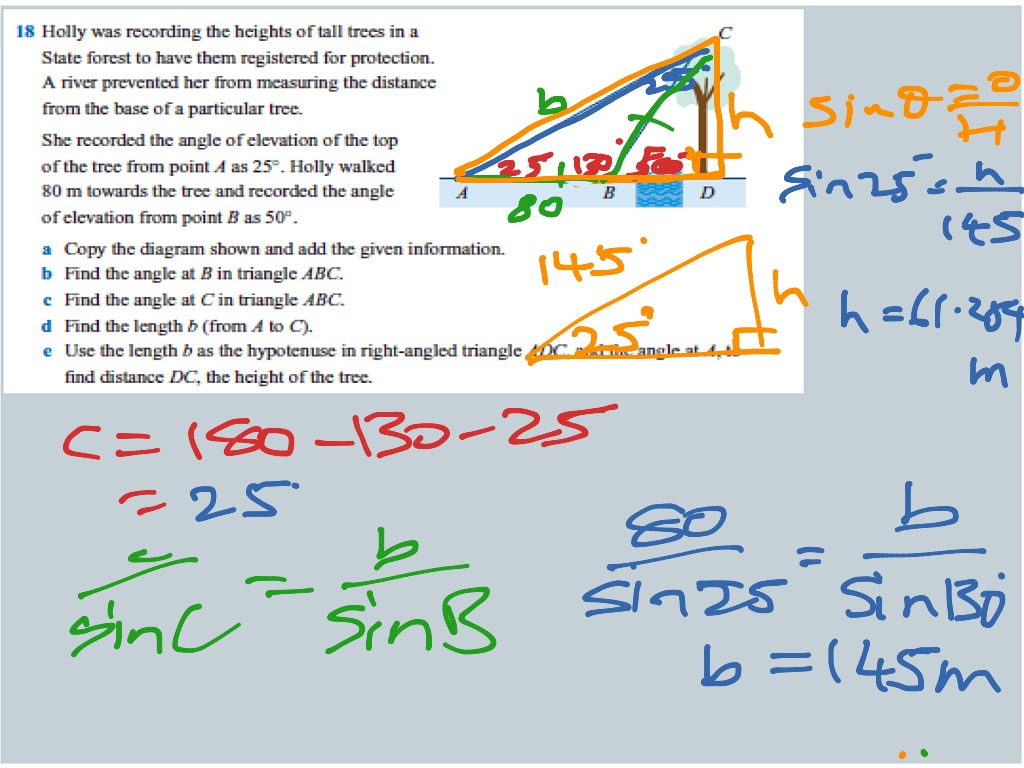 18 Holly was recording the heights of tall trees in a
State forest to have them registered for protection.
A river prevented her from measuring the distance
from the base of a particular tree.
She recorded the angle of elevation of the top
of the tree from point A as 25°. Holly walked
80 m towards the tree and recorded the angle
of elevation from point B as 50°.
a Copy the diagram shown and add the given information.
b Find the angle at B in triangle ABC.
c Find the angle at C in triangle ABC.
d Find the length b (from A to C).
e Use the length b as the hypotenuse in right-angled triangle ADC, and the angle at A, to
find distance DC, the height of the tree.
C
25
b
h
25 130° 50°
A B D
80
145
h
25°
sinθ = O/H
sin25 = h/145
h = 61.284
m
C = 180 - 130 - 25
= 25°
c/sinC = b/sinB
80/sin25 = b/sin130°
b = 145m